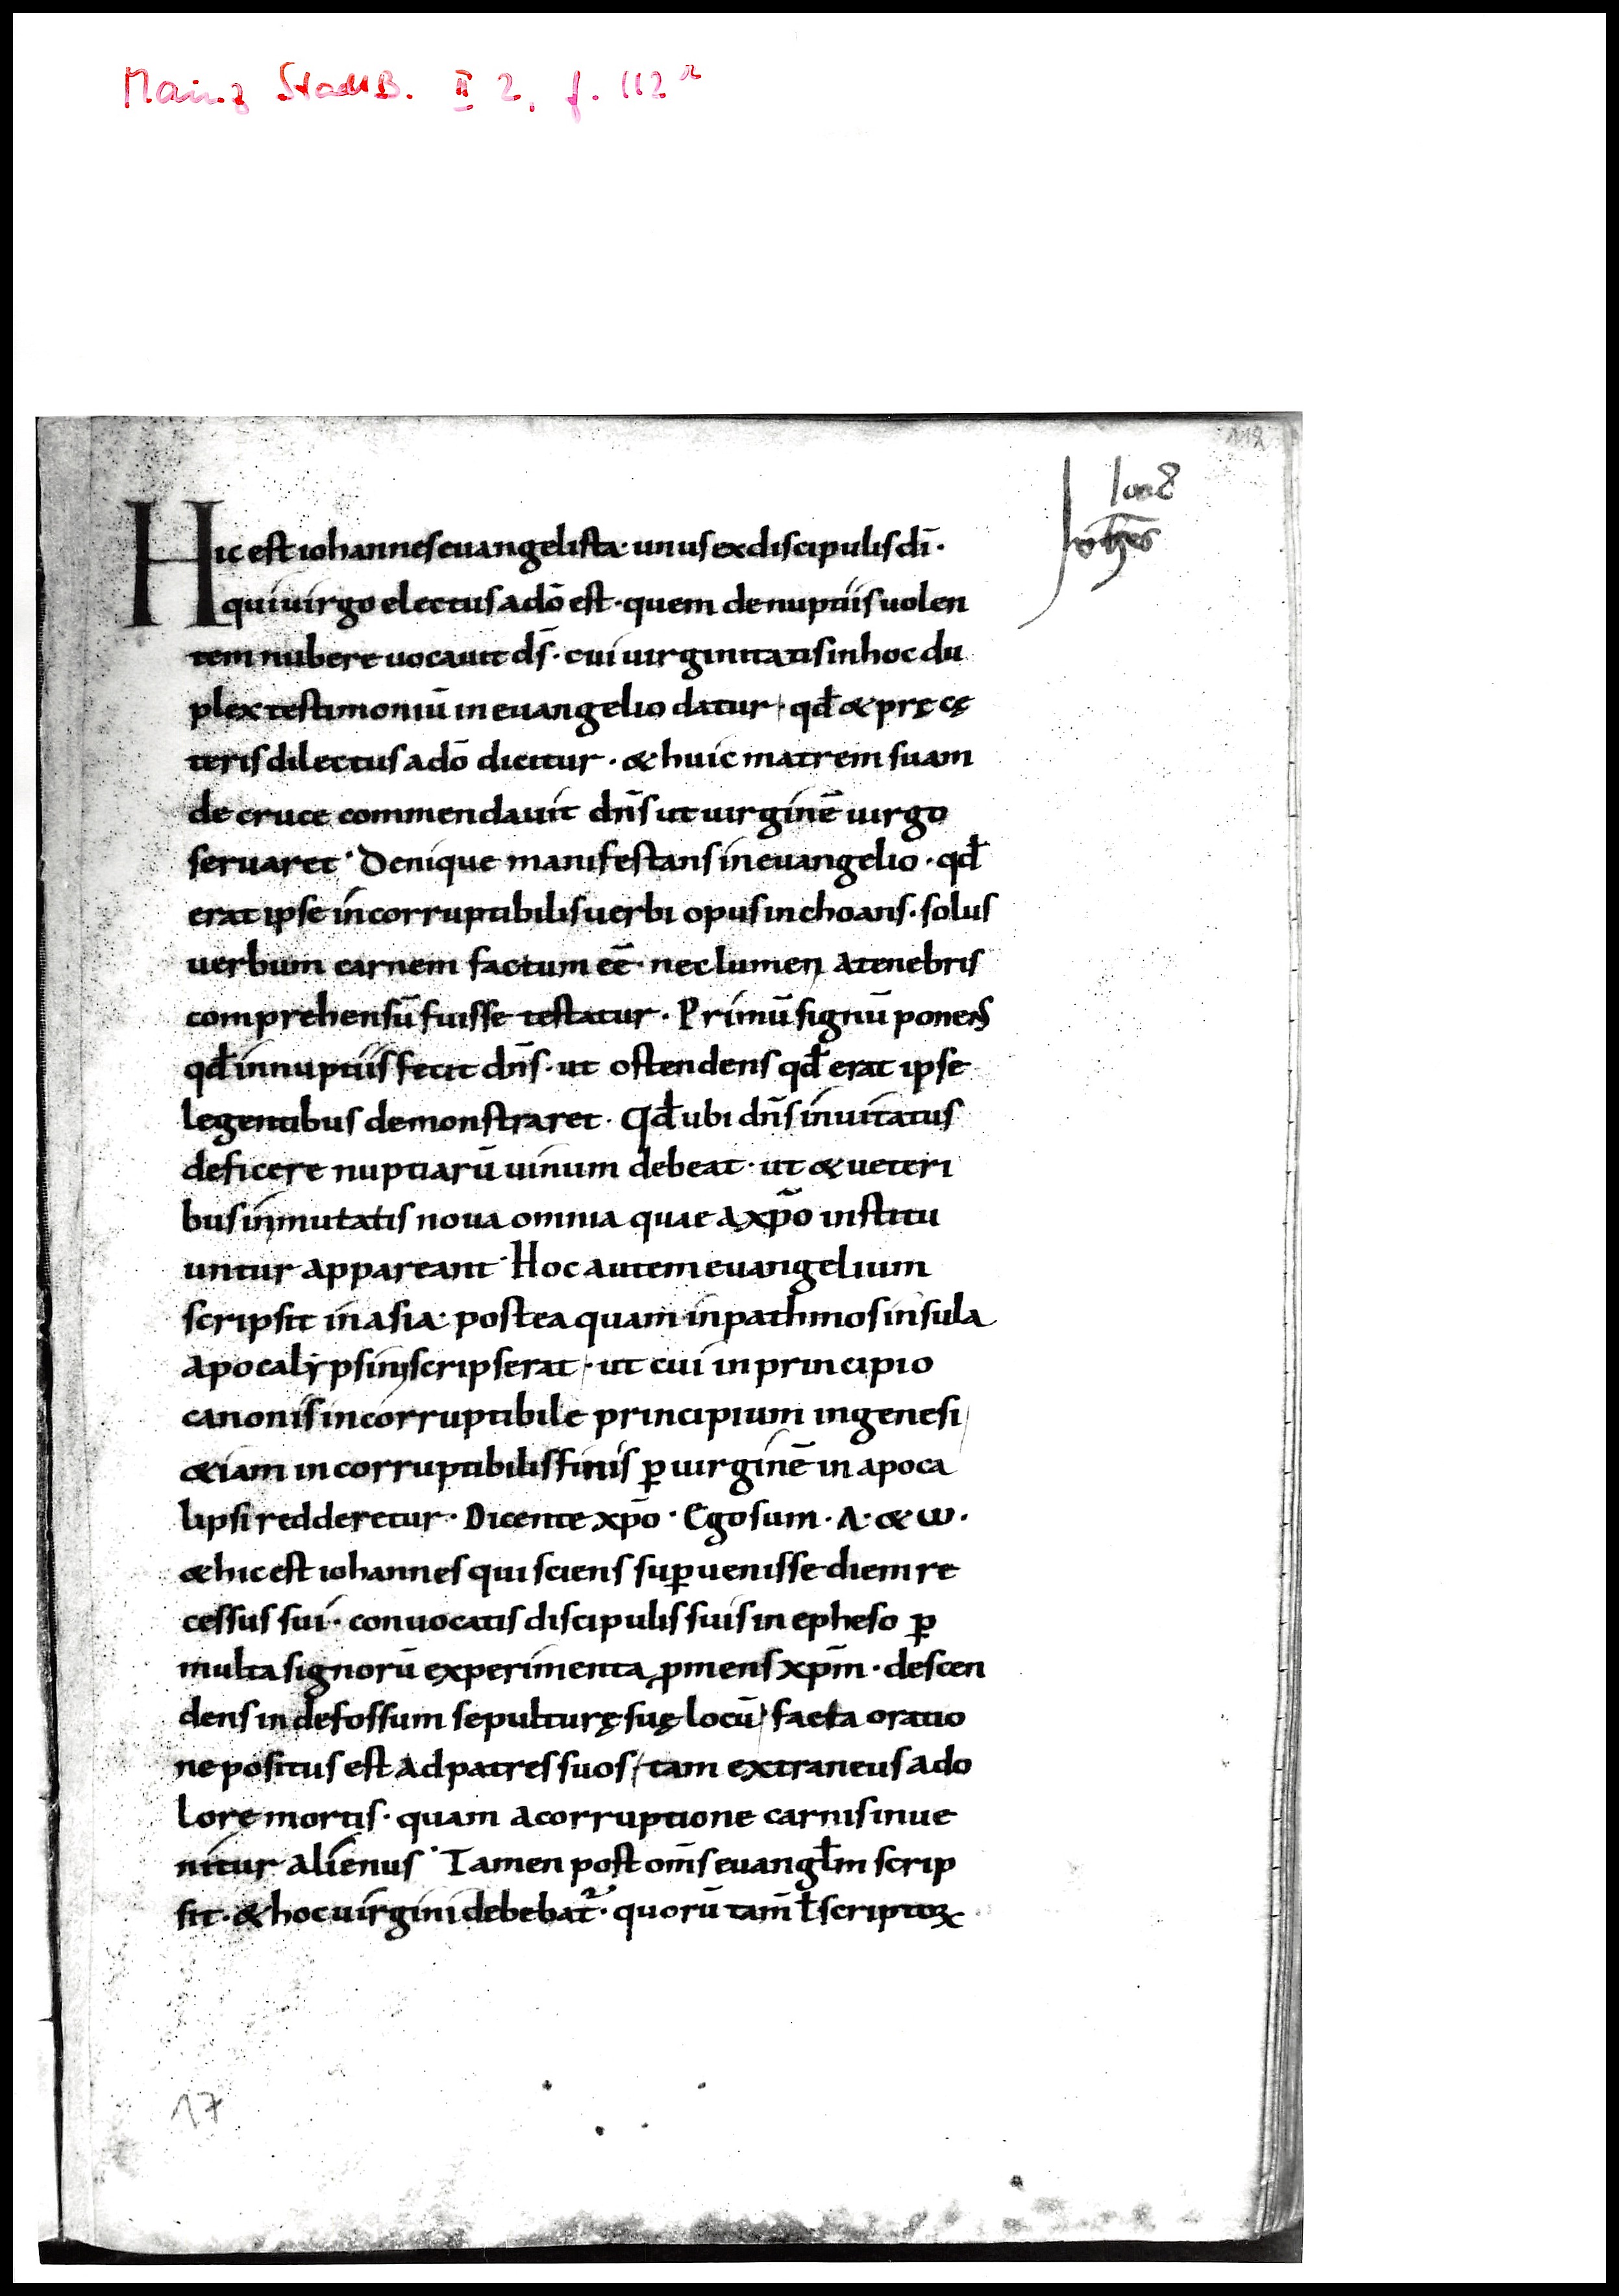 Mainz StadtB. II 2, f. 112r
112
Ioañ
Iohēs
Hic est iohannes euangelista· unus ex discipulis dī·
qui uirgo electus a dō est· quem de nuptiis uolen
tem nubere uocauit d̄s· cui uirginitatis in hoc du
plex testimoniū in euangelio datur· qđ & prę cę
teris dilectus a dō dicitur· & huic matrem suam
de cruce commendauit dn̄s ut uirginē uirgo
seruaret· Denique manifestans in euangelio· qđ
erat ipse incorruptibilis uerbi opus inchoans· solus
uerbum carnem factum eē· nec lumen a tenebris
comprehensū fuisse testatur· Primū signū ponens
qđ in nuptiis fecit dn̄s· ut ostendens qđ erat ipse
legentibus demonstraret· Qđ ubi dn̄s inuitatus
deficere nuptiarū uinum debeat· ut & ueteri
bus inmutatis noua omnia quae a xp̄o institu
untur appareant· Hoc autem euangelium
scripsit in asia· postea quam in pathmos insula
apocalẏpsin scripserat· ut cui in principio
canonis incorruptibile principium in genesi
&iam incorruptibilis finis ꝑ uirginē in apoca
lipsi redderetur· Dicente xp̄o· Ego sum· A· & ω·
& hic est iohannes qui sciens suꝑuenisse diem re
cessus sui· conuocatis discipulis suis in epheso ꝑ
multa signorū experimenta ꝓmens xp̄m· descen
dens in defossum sepulturę suę locū· facta oratio
ne positus est ad patres suos, tam extraneus a do
lore mortis· quam a corruptione carnis inue
nitur alienus· Tamen post om̄s euangl̄m scrip
sit· & hoc uirgini debebat᷑· quorū tam̄ ł scriptoꝝ
17